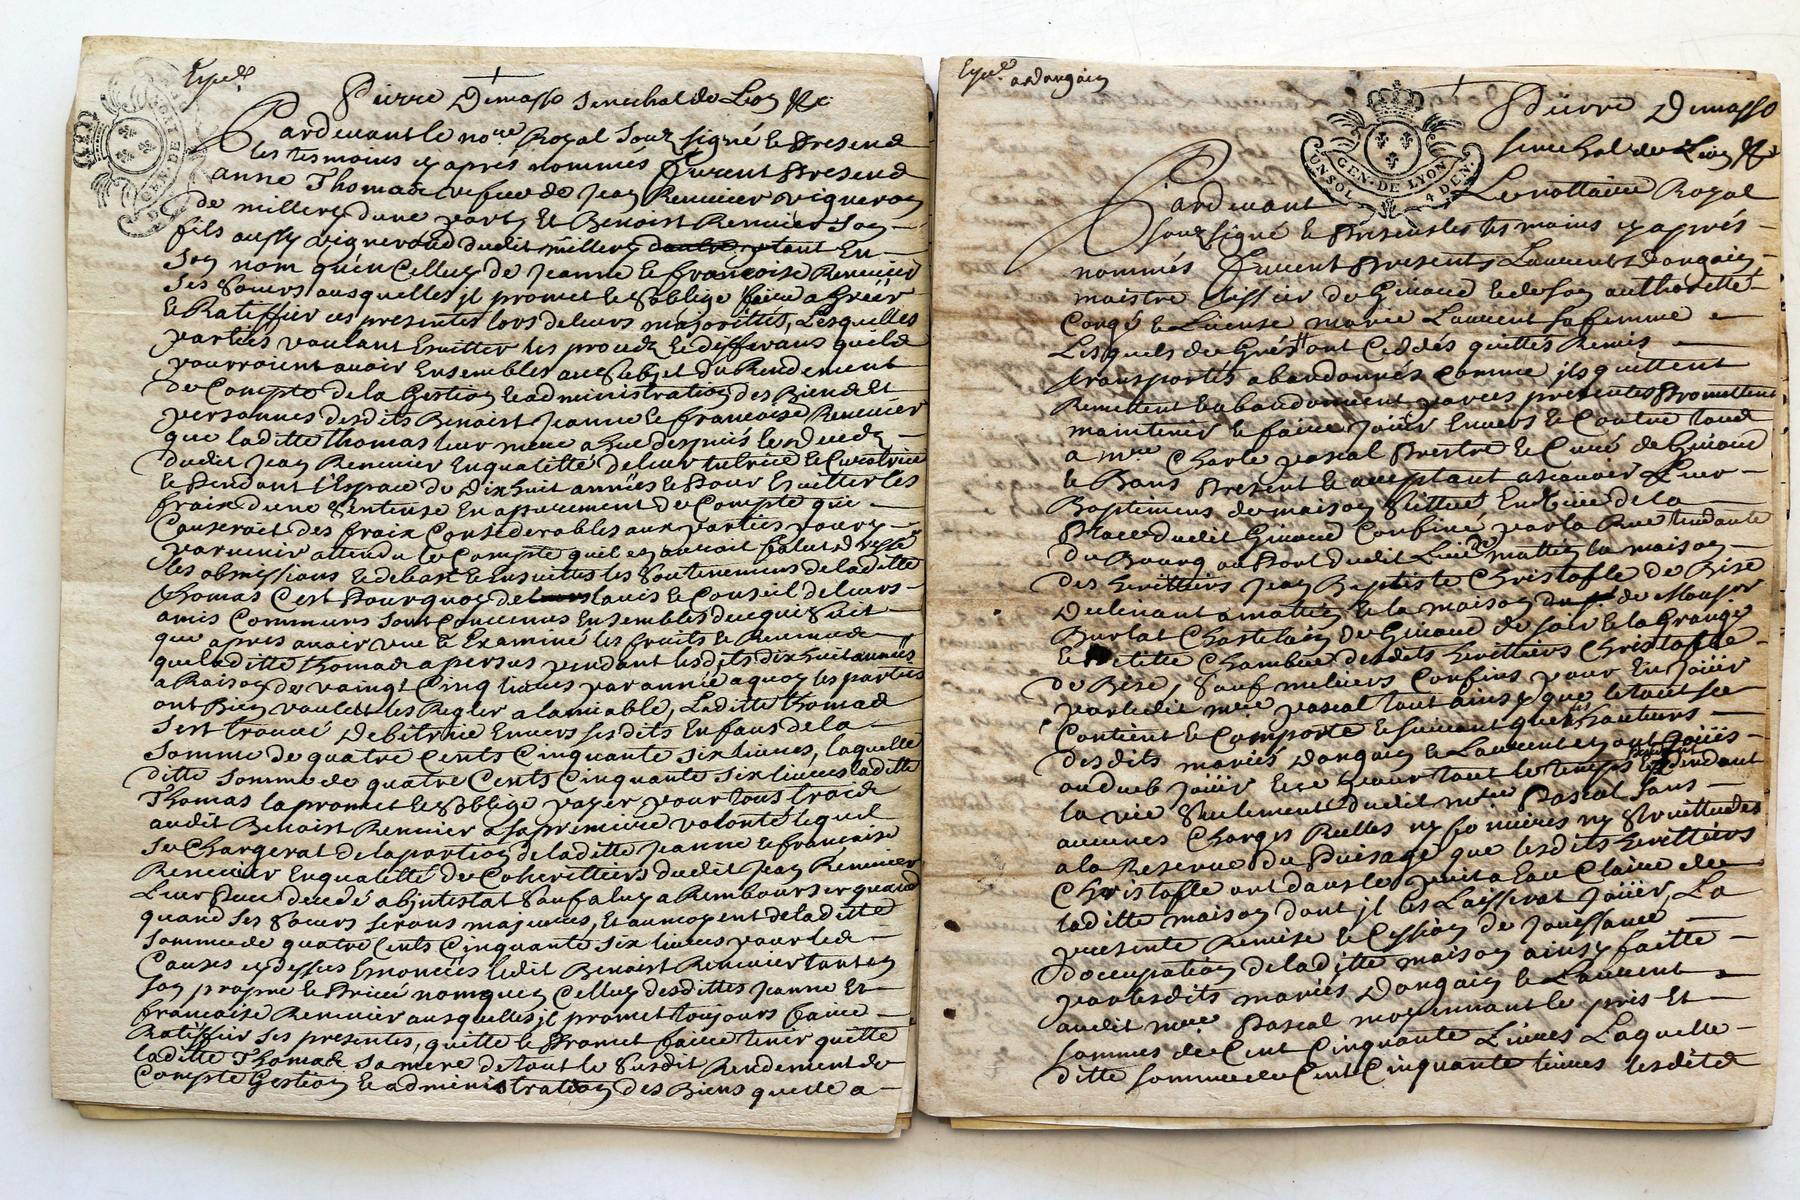 Expéd.
Pierre Demasso Senechal de Lion &c
Pardevant le no.re Royal Souz signé & Presend
les tesmoins cy aprés nommes furent Presend
anne Thomas vefve de Jean Rennier vigneron
de millery dune part, Et Benoist Rennier Son
fils aussy vigneron dudit millery tant En
Son nom qu'en Celluy de Jeanne & francoise Rennier
Ses Soeurs ausquelles jl promet & Soblige faire agréer
& Ratiffier ces presentes lors de leurs majorittés, Lesquelles
parties voulant Evitter les procedz & differans quels
pourroient avoir Ensembles au Subjet du Rendement
de Compte de la Gestion & administration des Biens Et
personnes desdits Benoist Jeanne & francoise Rennier
que laditte Thomas leur mere a heu despuis le deceds
dudit Jean Rennier En qualitté de leur tutrice & Curatrice
& Pendant l'Espace de Dixhuit années & Pour Eviter les
fraix dune Sentense En apurement de Compte qui
Causerait des fraix Considerables aux parties pour y
parvenir attendu le Compte quil en auroit falut
les obmissions & debast & Ensuittes les Soutenemens de laditte
Thomas C'est Pourquoy de lavis & Conseil de leurs
amis Communs Sont Convenus Ensembles de ce qui Suit
que apres avoir vue & Examiné les fruits & Revenus
que laditte Thomas a persus pendant lesdits dixhuit années
a Raison de vaingt Cinq livres par année a quoy les parties
ont Bien voulut les Regler a lamiable, Laditte Thomas
Sest trouvé Debitrice Envers Ses dits Enfans de la
Somme de quatre Cents Cinquante Six livres, laquelle
ditte Somme de quatre Cents Cinquante Six livres laditte
Thomas la promet & Soblige payer pour tous
audit Benoist Rennier a Sa premiere volonté lequel
Se Chargerat de la portion de laditte Jeanne & francoise
Rennier En qualitté de Coheritiers dudit Jean Rennier
Leur Pere decedé abjntestat Sauf a luy a Rembourser quand
quand Ses Soeurs Serons majeures, Et au moyent de laditte
Somme de quatre Cents Cinquante Six livres pour led
Causes cy dessus Enoncées ledit Benoist Rennier tant en
Son propre & Privé nom quen Celluy desdittes Jeanne Et
francoise Rennier ausquelles jl promet toujours faire
Ratiffier Ses presentes, quitte & Promet faire tenir quitte
laditte Thomas Sa mere de tout le Susdit Rendement de
Compte Gestion & administration des Biens quelle a
Expéd. a dangain
GEN. DE LYON
4 DEN.
Pierre Demasso
Senechal de Lion &c
Pardevant Le nottaire Royal
Souz Signé & Presens les tesmoins cy aprés
nommés furent Presents Laurent dangain
maistre de Givord & de Son authoritté
Congé & License marie Laurent Sa femme
Lesquels de Gré ont Ceddés quittés Remis
transportés abandonnés comme jls quittent
Remettent & abandonnent par ces presentes Promettent
maintenir & faire Joüir Envers & Contre tous
a m.re Charle pascal Prestre & Curé de Givord
& Bans Present & acceptant a Scavoir Leur
Baptimens de maison Sittué En de la
Place dudit Givord Confiné par la Rue tendante
du Bourg au Port dudit Lieu de mattin la maison
des heritiers Jean Baptiste Christofle de Bise
Declinant a matin & la maison de Mons.r
Burlat Chastelain de Givord de Soir & la Grange
& Petitte Chambre desdits heritiers Christofle
de Bise, Sauf meliurs Confins pour En Joüir
par ledit m.re pascal tout ainsy que le tout Se
Contient & Comporte & Suivant que les hauteurs
desdits mariés dangain & Laurent en ont Joüis
ou deub Joüir & ce Pour tout le temps & pendant
la vie Seulement dudit m.re Pascal Sans
aucunes Charges Reelles ny foncieres ny Servittudes
a la Reserve du Puisage que lesdits heritiers
Christofle ont dans le puit a Eau Claire de
laditte maison dont jl les Laisserat Joüir, La
presente Remise & Cession de Joüissance
d'occupation de laditte maison ainsy faitte
par lesdits mariés Dangain & Laurent
audit m.re Pascal moyennant le pris Et
Somme de Cent Cinquante Livres Laquelle
ditte Somme de Cent Cinquante livres lesdits